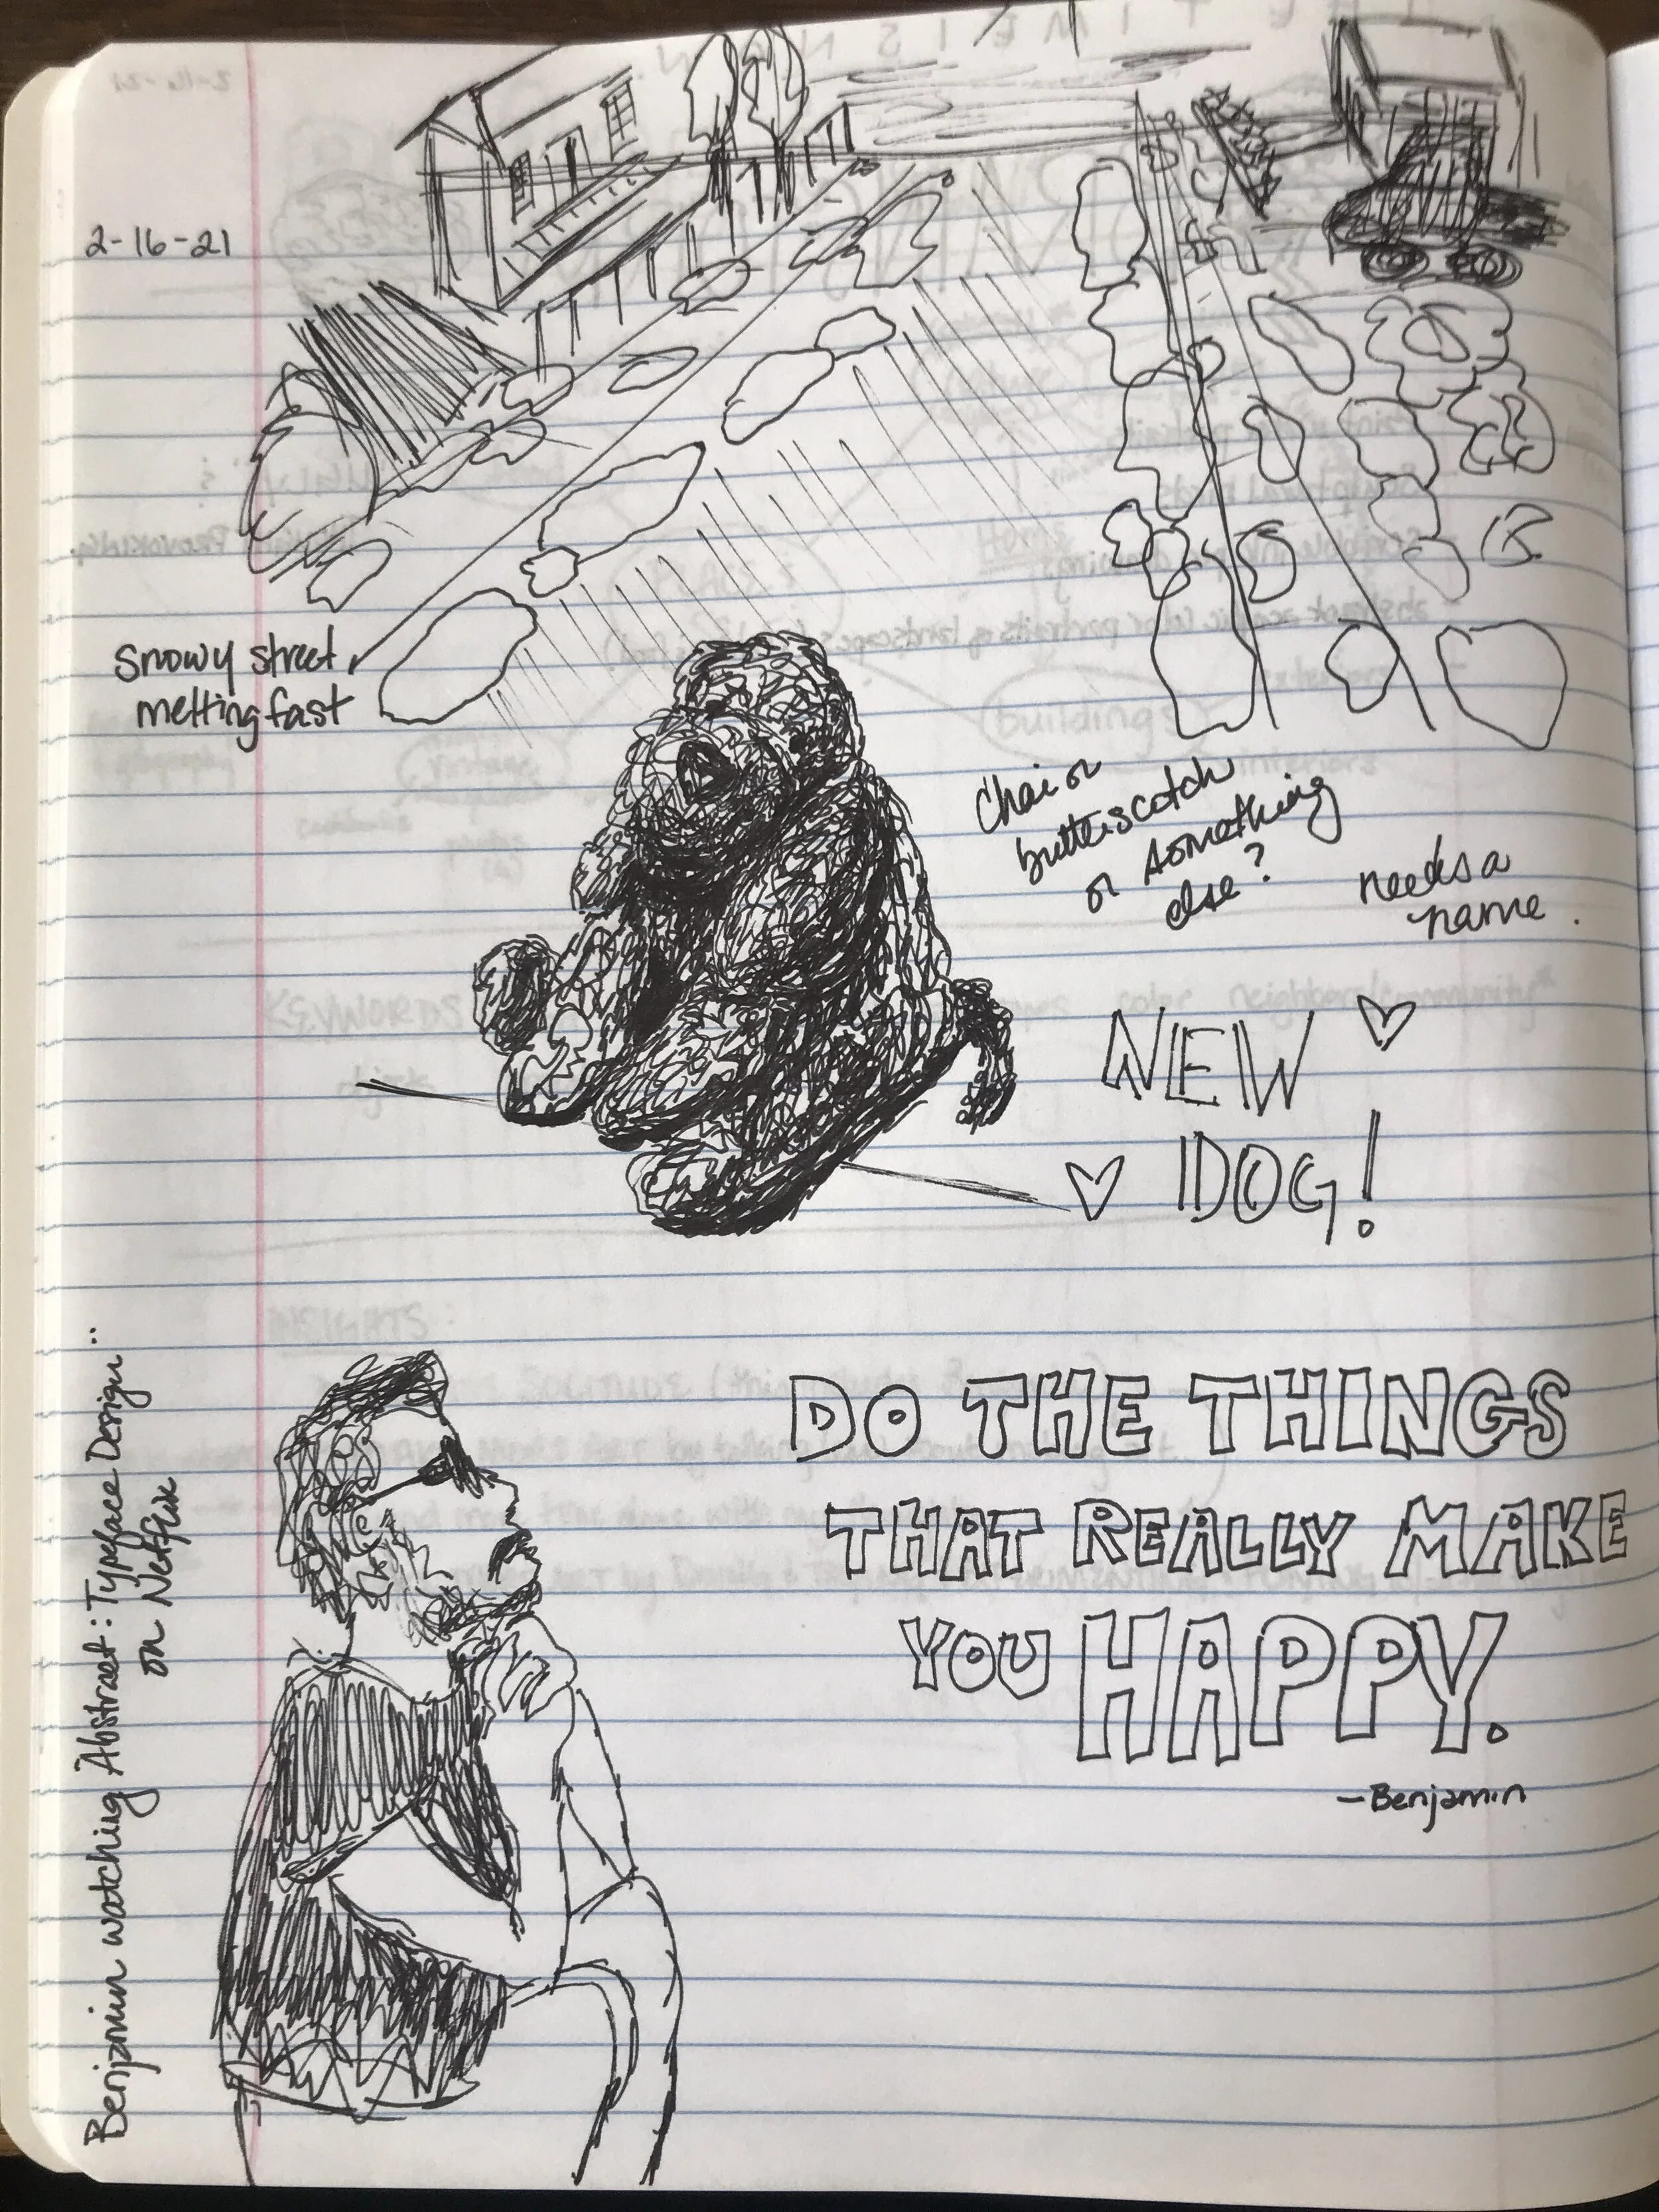 2-16-21
Snowy street
melting fast
Chai or
butterscotch
or something
else?
needs a
name.
NEW
DOG!
Benjamin watching Abstract: Typeface Design
on Netflix
DO THE THINGS
THAT REALLY MAKE
YOU HAPPY.
—Benjamin
buildings
interiors
KEYWORDS
INSIGHTS: